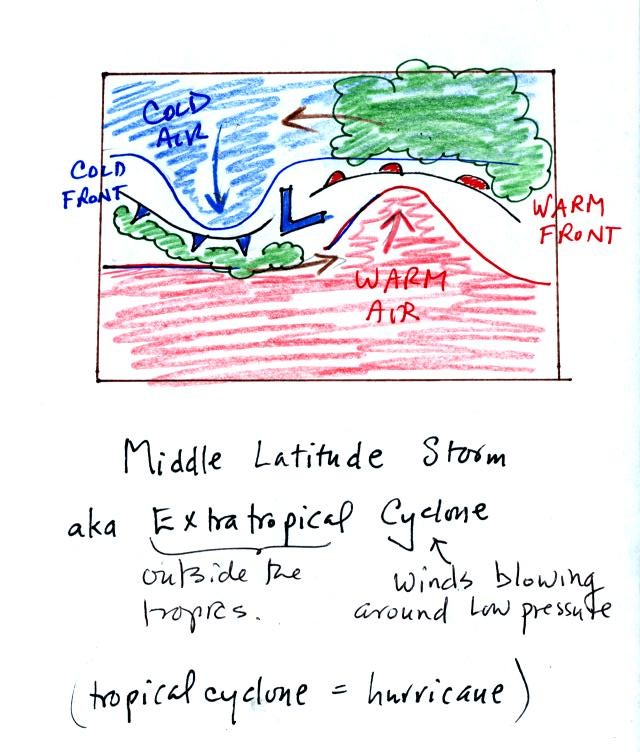 COLD
AIR
COLD
FRONT
L
WARM
FRONT
WARM
AIR
Middle Latitude Storm
aka Extratropical Cyclone
outside the
tropics.
winds blowing
around low pressure
(tropical cyclone = hurricane)